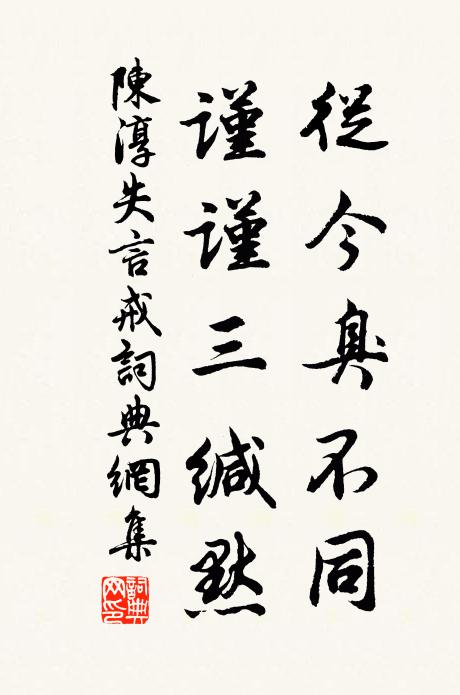 從今臭不同
謹謹三緘默
陳淳失言戒詞典網集
詞典
网印